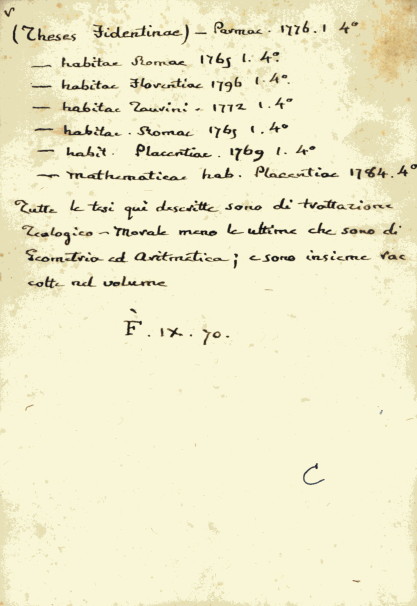 v
(Theses Fidentinae) - Parmae. 1776. 1 4°
— habitae Romae 1765 1. 4°.
— habitae Florentiae 1796 1. 4°.
— habitae Taurini - 1772 1. 4°
— habitae. Romae 1765 1. 4°
— habit. Placentiae. 1769 1. 4°
— mathematicae hab. Placentiae 1784. 4°
Tutte le tesi qui descritte sono di trattazione
Teologico - Morale meno le ultime che sono di
Geometria ed Aritmetica; e sono insieme rac
colte nel volume
F. IX. 70.
C